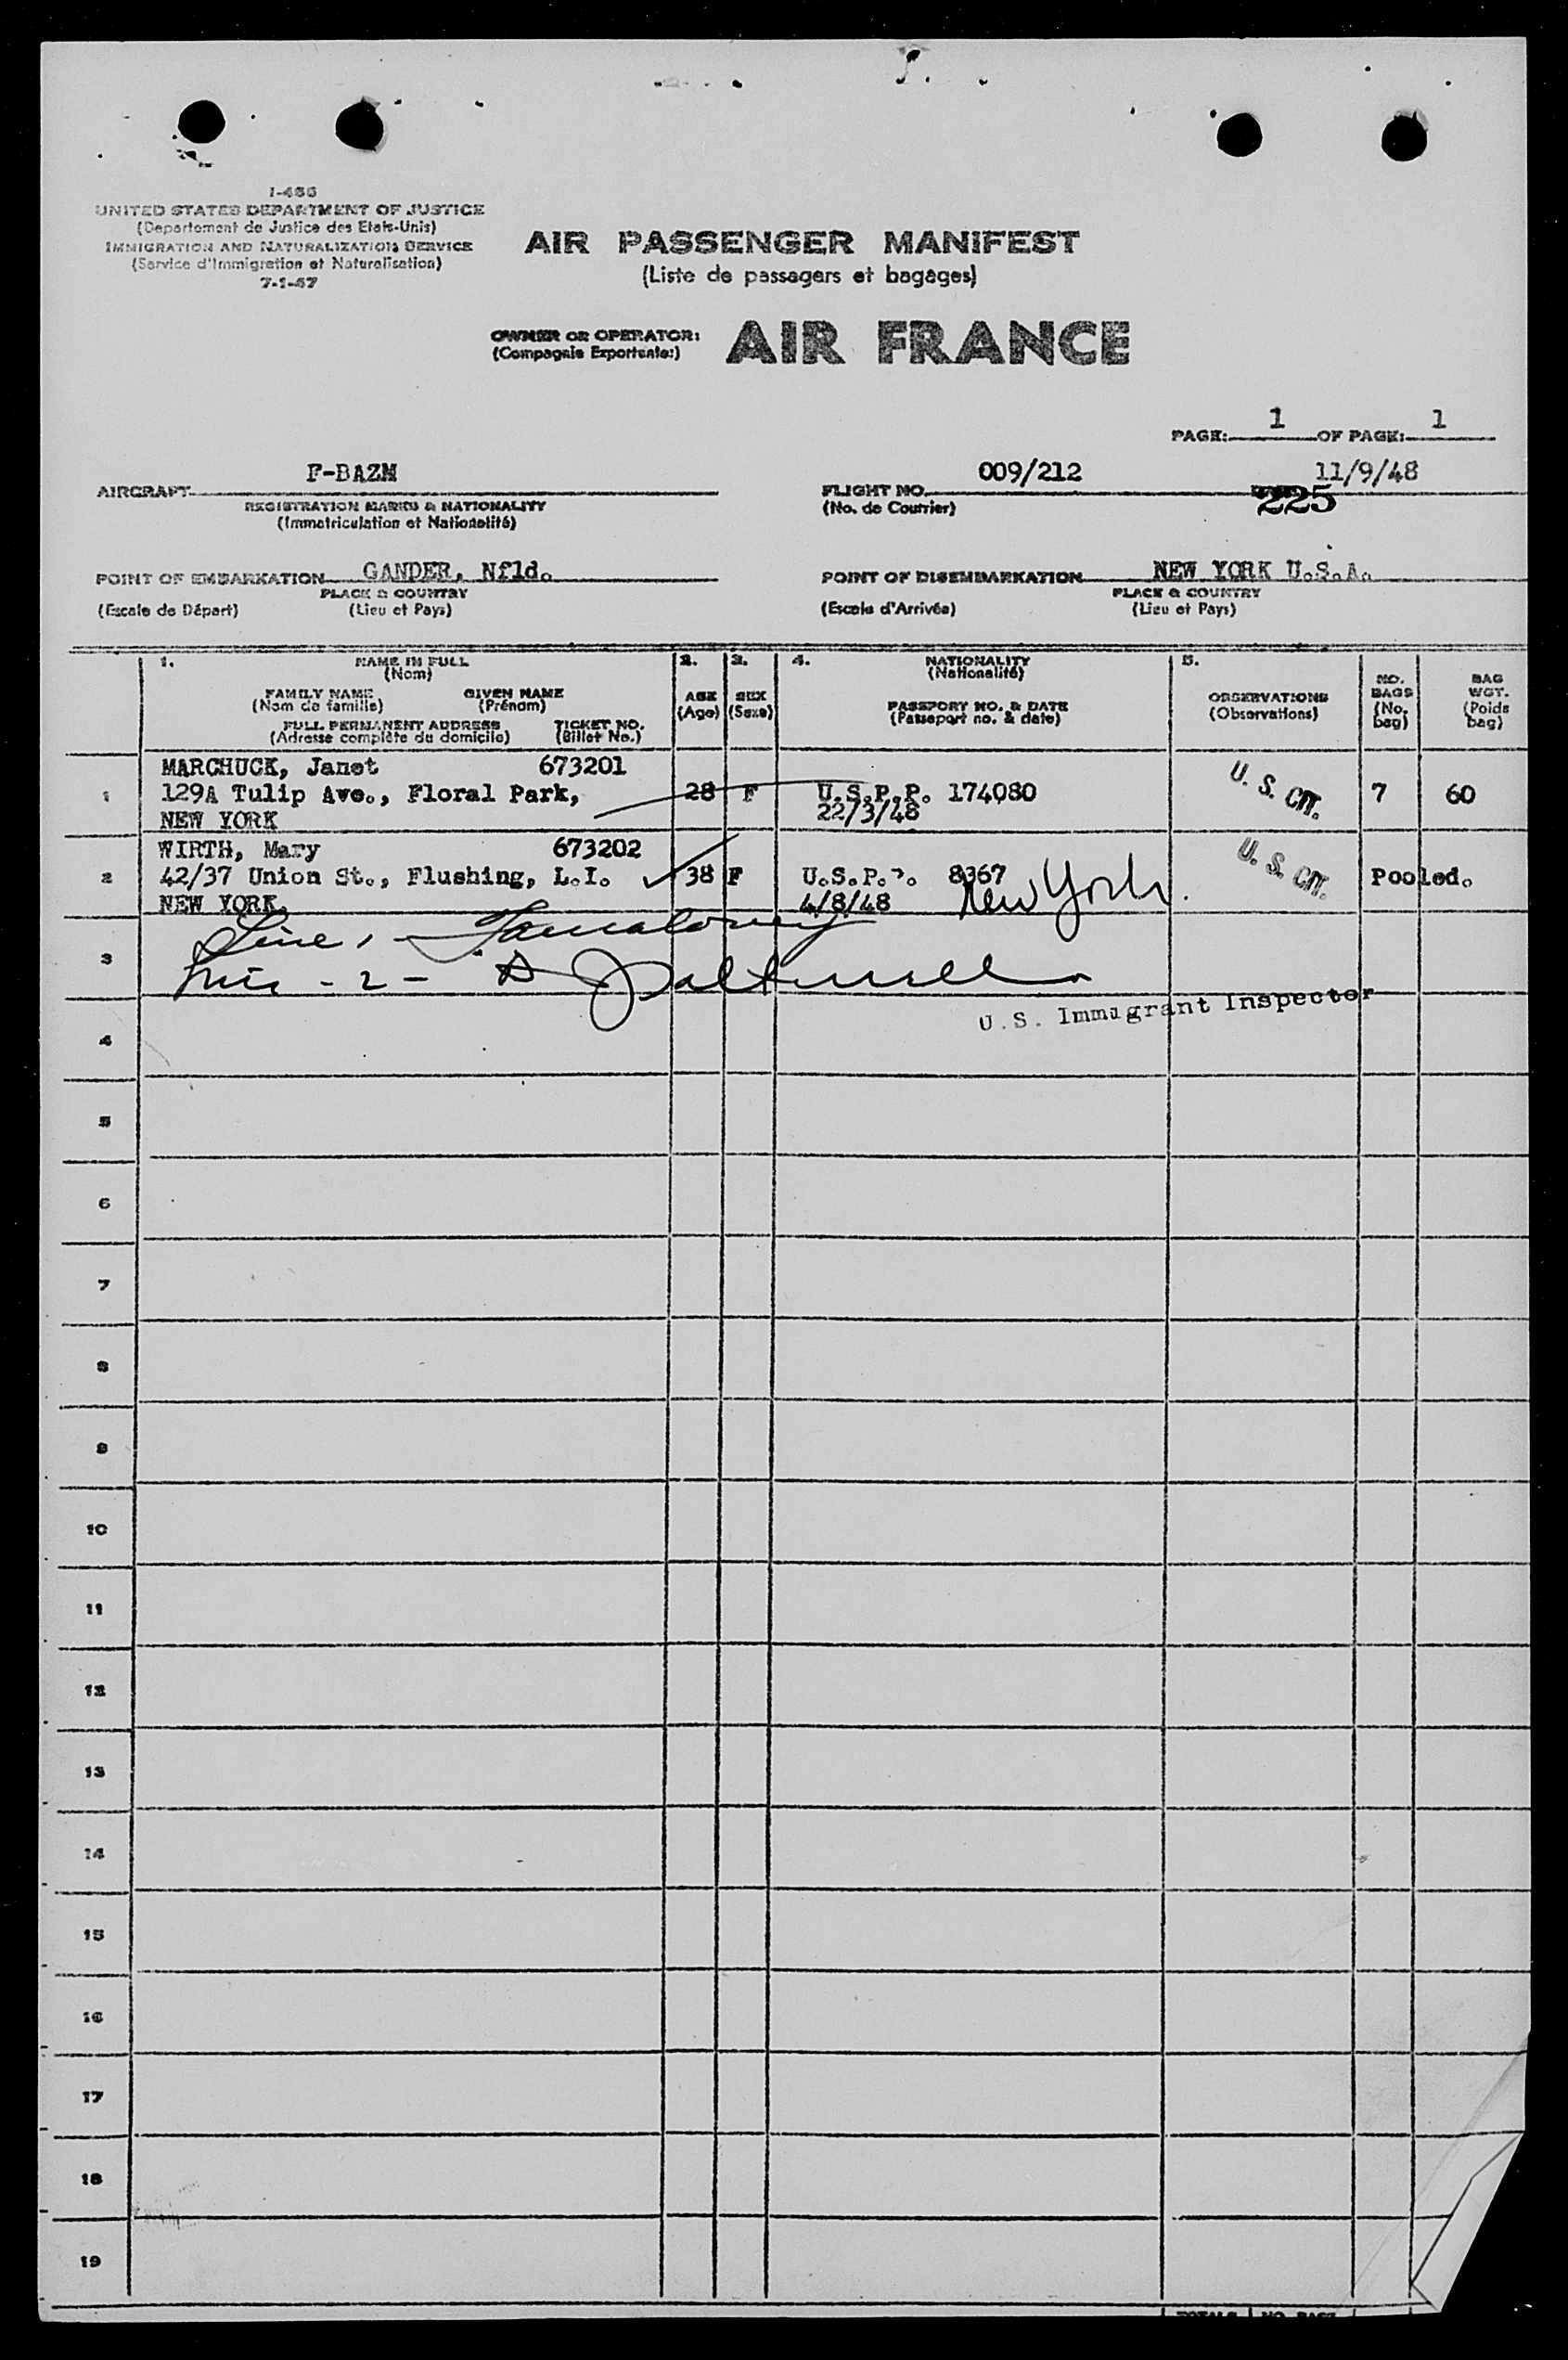 I-466
UNITED STATES DEPARTMENT OF JUSTICE
(Departement de Justice des Etats-Unis)
IMMIGRATION AND NATURALIZATION SERVICE
(Service d'Immigration et Naturalisation)
7-1-47
AIR PASSENGER MANIFEST
(Liste de passagers et bagages)
OWNER OR OPERATOR: AIR FRANCE
(Compagnie Exportante:)
PAGE: 1 OF PAGE: 1
AIRCRAFT F-BAZM
REGISTRATION MARKS & NATIONALITY
(Immatriculation et Nationalité)
FLIGHT NO. 009/212 11/9/48
(No. de Courrier) 225
POINT OF EMBARKATION GANDER, Nfld.
PLACE & COUNTRY
(Escale de Départ) (Lieu et Pays)
POINT OF DISEMBARKATION NEW YORK U.S.A.
PLACE & COUNTRY
(Escale d'Arrivée) (Lieu et Pays)
1. NAME IN FULL 2. 3. 4. NATIONALITY 5.
(Nom) (Nationalité)
FAMILY NAME GIVEN NAME AGE SEX PASSPORT NO. & DATE OBSERVATIONS NO. BAGS BAG WGT.
(Nom de famille) (Prénom) (Age) (Sexe) (Passeport no. & date) (Observations) (No. bag) (Poids bag)
FULL PERMANENT ADDRESS TICKET NO.
(Adresse complète du domicile) (Billet No.)
MARCHUCK, Janet 673201
1 129A Tulip Ave., Floral Park, 28 F U.S.P.P. 174080 U. S. CIT. 7 60
NEW YORK 22/3/48
WIRTH, Mary 673202
2 42/37 Union St., Flushing, L.I. 38 F U.S.P.P. 8367 U. S. CIT. Pooled.
NEW YORK. 4/8/48 New York.
Line 1 -
3 Line - 2 -
U.S. Immigrant Inspector
4
5
6
7
8
9
10
11
12
13
14
15
16
17
18
19